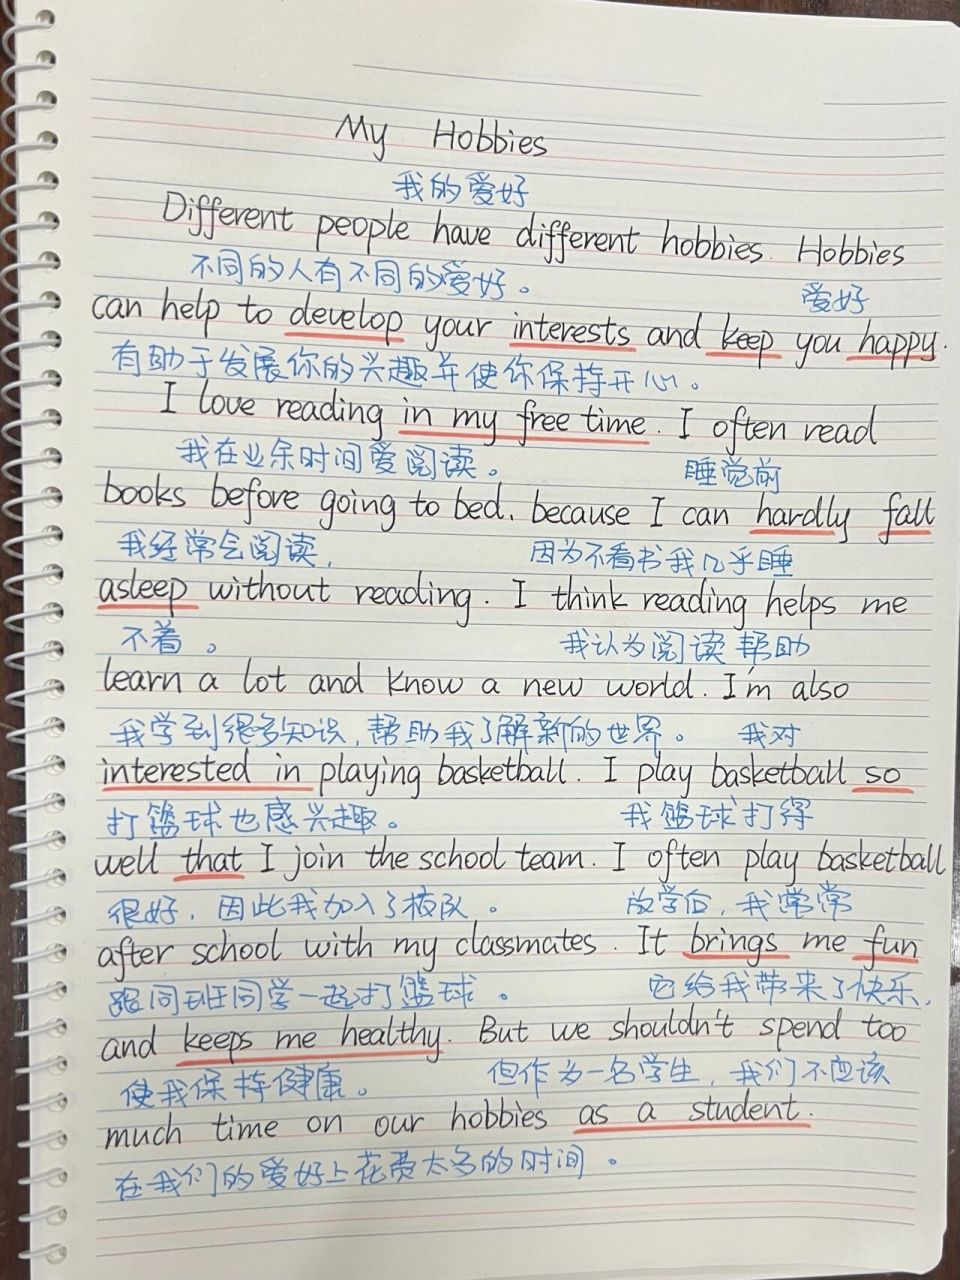 My Hobbies
我的爱好
Different people have different hobbies. Hobbies
不同的人有不同的爱好。 爱好
can help to develop your interests and keep you happy.
有助于发展你的兴趣并使你保持开心。
I love reading in my free time. I often read
我在业余时间爱阅读。 睡觉前
books before going to bed, because I can hardly fall
我经常会阅读, 因为不看书我几乎睡
asleep without reading. I think reading helps me
不着。 我认为阅读帮助
learn a lot and know a new world. I'm also
我学到很多知识,帮助我了解新的世界。 我对
interested in playing basketball. I play basketball so
打篮球也感兴趣。 我篮球打得
well that I join the school team. I often play basketball
很好,因此我加入了校队。 放学后,我常常
after school with my classmates. It brings me fun
跟同班同学一起打篮球。 它给我带来了快乐,
and keeps me healthy. But we shouldn't spend too
使我保持健康。 但作为一名学生,我们不应该
much time on our hobbies as a student.
在我们的爱好上花费太多的时间。